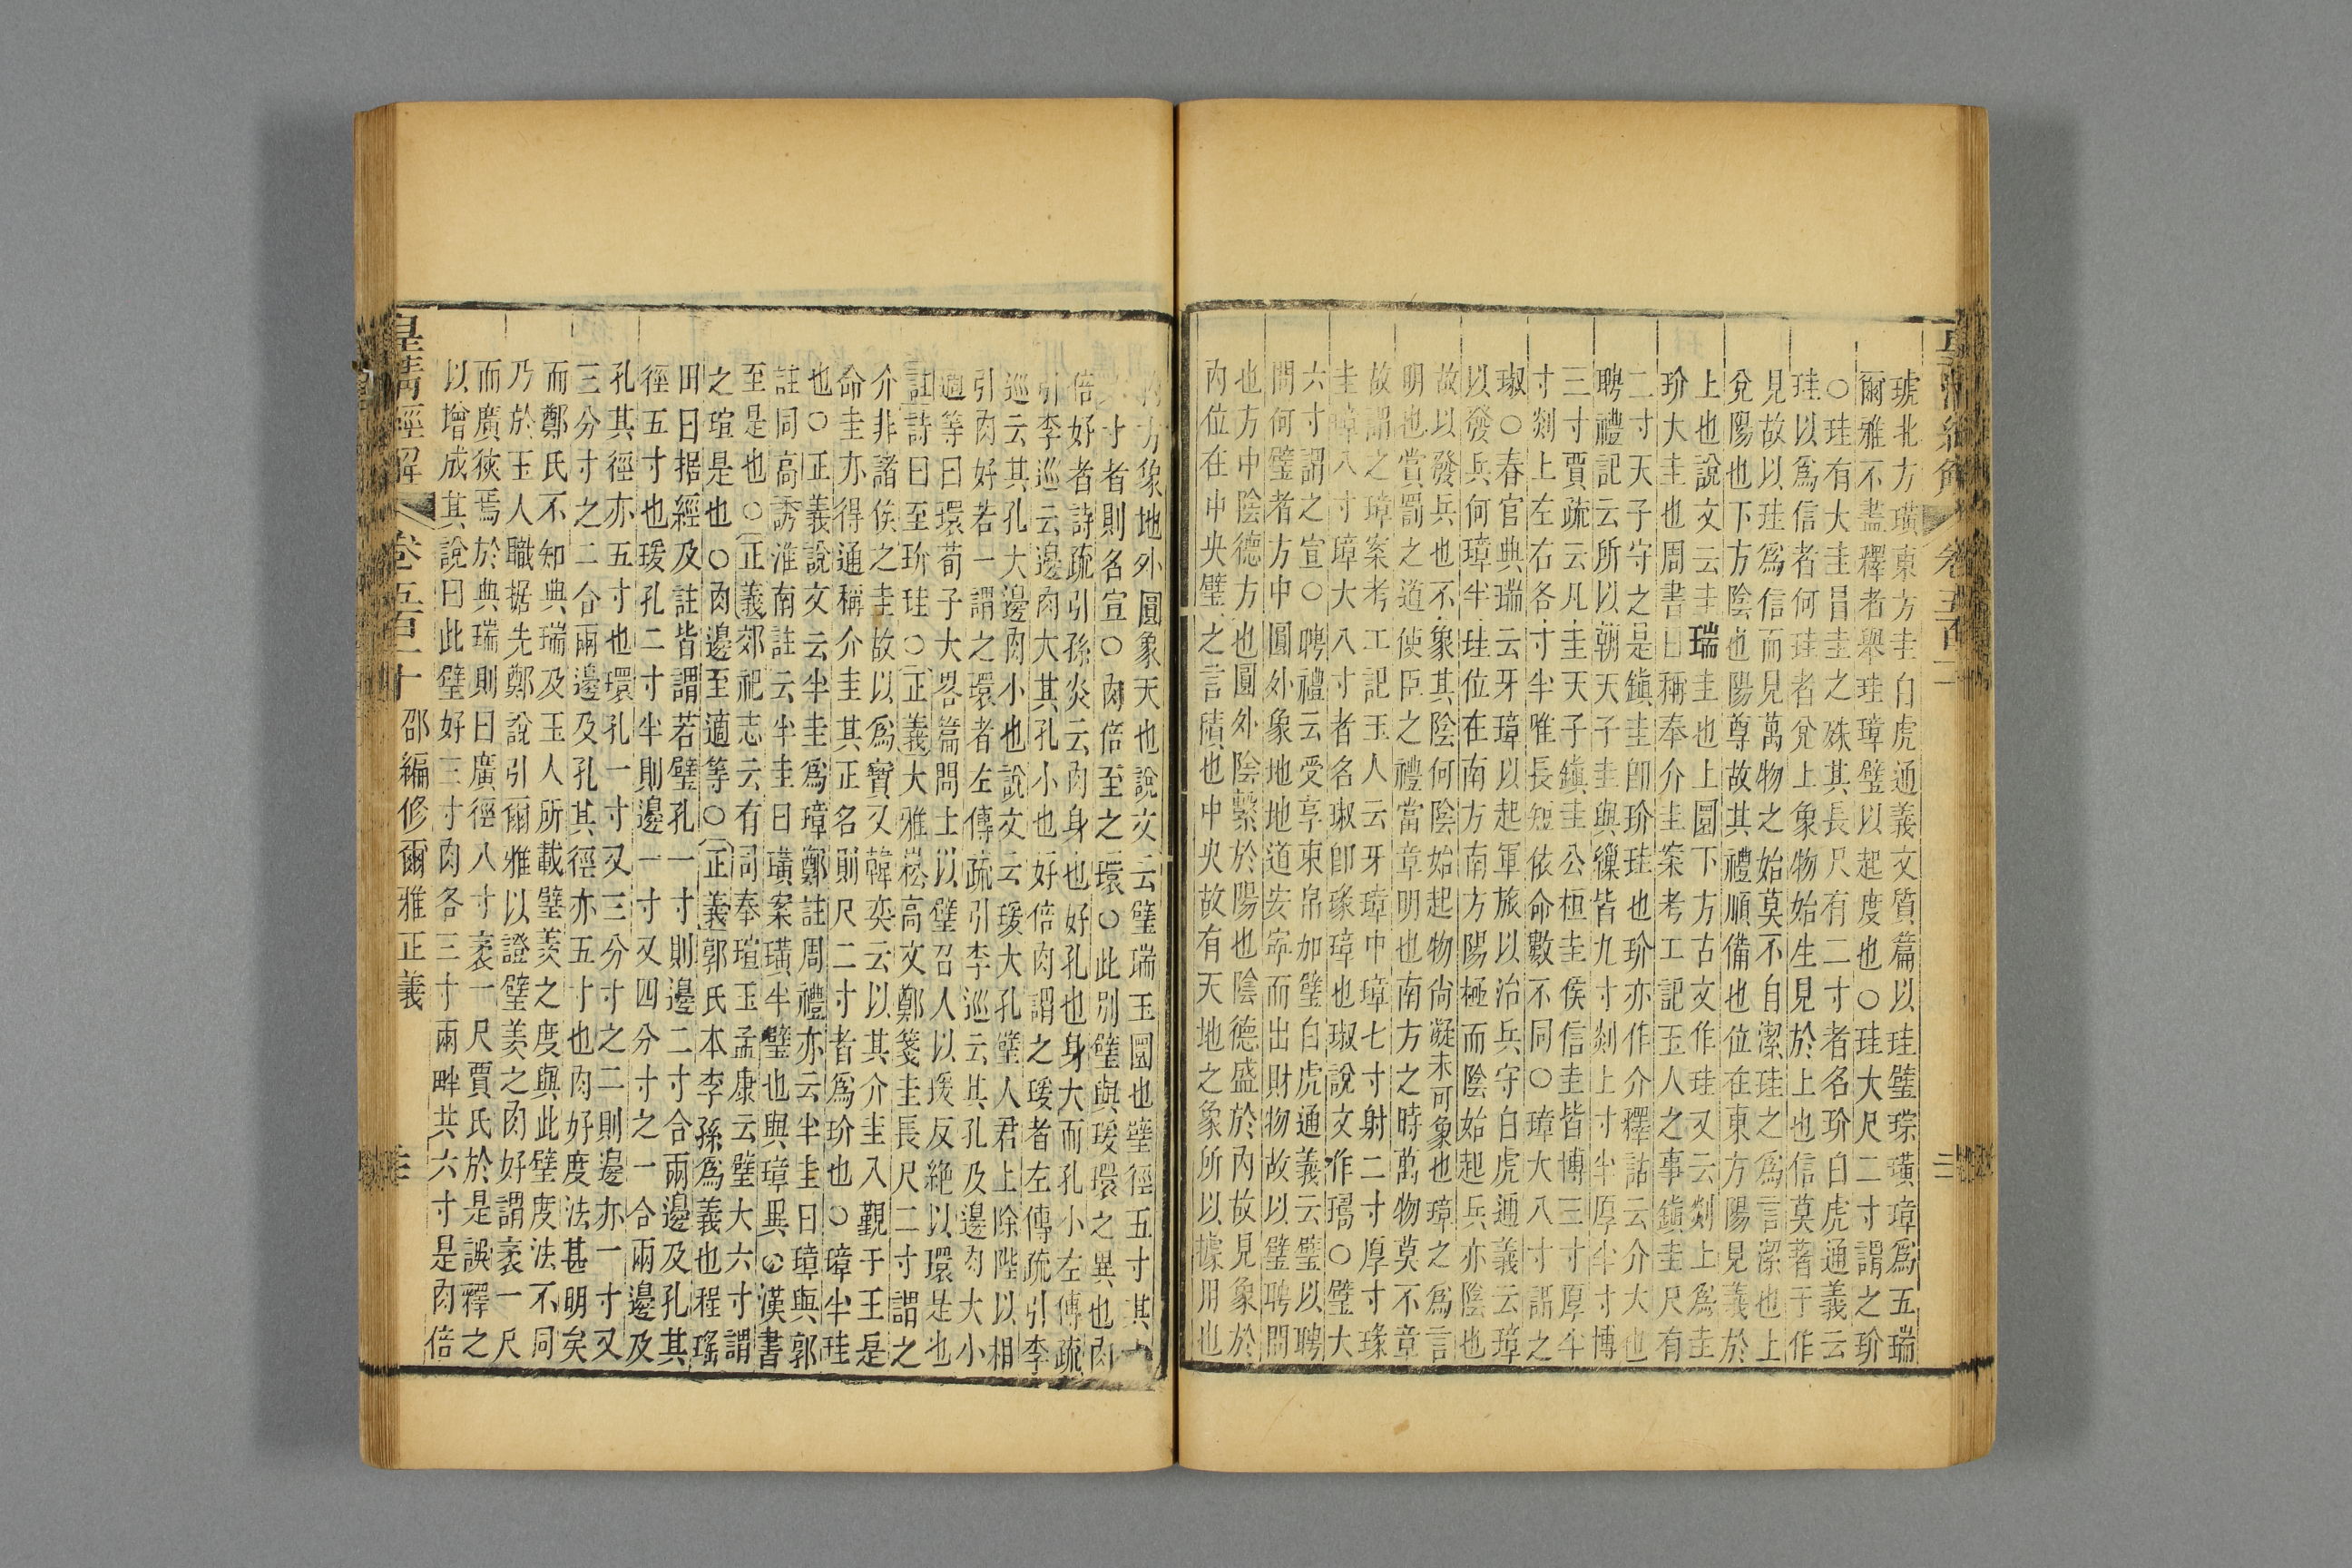 琥北方璜東方圭白虎通義文質篇以珪璧琮璜璋爲五瑞
爾雅不盡釋者舉珪璋璧以起度也○珪大尺二寸謂之玠
○珪有大圭冒圭之殊其長尺有二寸者名玠白虎通義云
珪以爲信者何珪者兌上象物始生見於上也信莫著于作
見故以珪爲信而見萬物之始莫不自潔珪之爲言潔也上
兌陽也下方陰也陽尊故其禮順備也位在東方陽見義於
上也說文云圭瑞圭也上圜下方古文作珪又云剡上爲圭
玠大圭也周書曰稱奉介圭案考工記玉人之事鎭圭尺有
二寸天子守之是鎭圭卽玠珪也玠亦作介釋詁云介大也
聘禮記云所以朝天子圭與繅皆九寸剡上寸半厚半寸博
三寸賈疏云凡圭天子鎭圭公桓圭侯信圭皆博三寸厚半
寸剡上左右各寸半唯長短依命數不同○璋大八寸謂之
琡○春官典瑞云牙璋以起軍旅以治兵守白虎通義云璋
以發兵何璋半珪位在南方南方陽極而陰始起兵亦陰也
故以發兵也不象其陰何陰始起物尙凝未可象也璋之爲言
明也賞罰之道使臣之禮當章明也南方之時萬物莫不章
故謂之璋案考工記玉人云牙璋中璋七寸射二寸厚寸瑑
圭璋八寸璋大八寸者名琡卽瑑璋也琡說文作璹○璧大
六寸謂之宣○聘禮云受享束帛加璧白虎通義云璧以聘
問何璧者方中圓外象地地道安寧而出財物故以璧聘問
也方中陰德方也圓外陰繫於陽也陰德盛於內故見象於
內位在中央璧之言積也中央故有天地之象所以據用也
內方象地外圓象天也說文云璧瑞玉圜也璧徑五寸其
寸者則名宣○肉倍至之環○此別璧與瑗環之異也肉
倍好者詩疏引孫炎云肉身也好孔也身大而孔小左傳疏
引李巡云邊肉大其孔小也好倍肉謂之瑗者左傳疏引李
巡云其孔大邊肉小也說文云瑗大孔璧人君上除陛以相
引肉好若一謂之環者左傳疏引李巡云其孔及邊肉大小
適等曰環荀子大畧篇問士以璧召人以瑗反絶以環是也
註詩曰至玠珪○正義大雅崧高文鄭箋圭長尺二寸謂之
介非諸侯之圭故以爲寶又韓奕云以其介圭入覲于王是
命圭亦得通稱介圭其正名則尺二寸者爲玠也○璋半珪
也○正義說文云半圭爲璋鄭註周禮亦云半圭曰璋與郭
註同高誘淮南註云半圭曰璜案璜半璧也與璋異○漢書
至是也○正義郊祀志云有司奉瑄玉孟康云璧大六寸謂
之瑄是也○肉邊至適等○正義郭氏本李孫爲義也程瑤
田曰据經及註皆謂若璧孔一寸則邊二寸合兩邊及孔其
徑五寸也瑗孔二寸半則邊一寸又四分寸之一合兩邊及
孔其徑亦五寸也環孔一寸又三分寸之二則邊亦一寸又
三分寸之二合兩邊及孔其徑亦五寸也肉好度法甚明矣
而鄭氏不知典瑞及玉人所載璧羨之度與此璧度法不同
乃於玉人職据先鄭說引爾雅以證璧羨之肉好謂袤一尺
而廣狹焉於典瑞則曰廣徑八寸袤一尺賈氏於是誤釋之
以增成其說曰此璧好三寸肉各三寸兩畔共六寸是肉倍
皇清經解 卷五百一十 邵編修爾雅正義